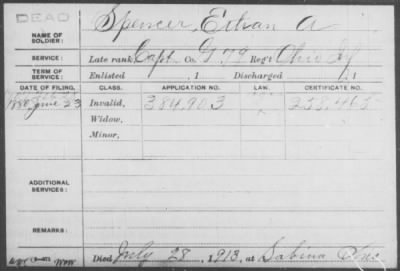 DEAD
NAME OF SOLDIER: Spencer, Ethan A
SERVICE: Late rank, Capt Co. G 79 Reg't Ohio Inf
TERM OF SERVICE: Enlisted , 1 Discharged , 1
DATE OF FILING. CLASS. APPLICATION NO. LAW. CERTIFICATE NO.
1880 June 23 Invalid, 384,903 258,465
Widow,
Minor,
ADDITIONAL SERVICES:
REMARKS:
Died July 28, 1913, at Sabina